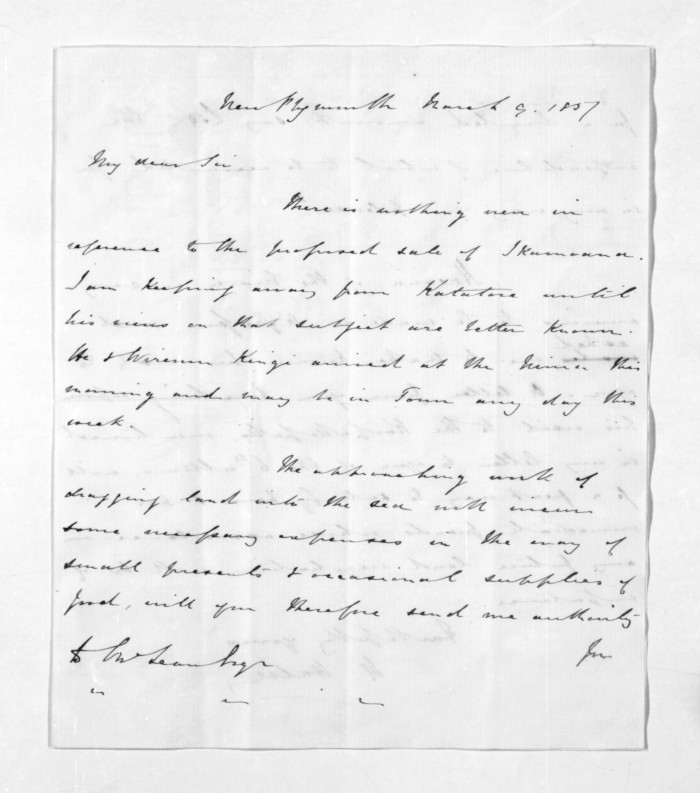 New Plymouth March 9. 1857
My dear Sir
There is nothing new in
reference to the proposed sale of Ikamoana.
I am keeping away from Katatore until
his views on that subject are better known.
He & Wiremu Kingi arrived at the this
morning and may be in Town any day this
week.
The approaching work of
dragging land into the sea will incur
some necessary expenses in the way of
small presents & occasional supplies of
food, will you therefore send me authority
for
D McLean Esqr